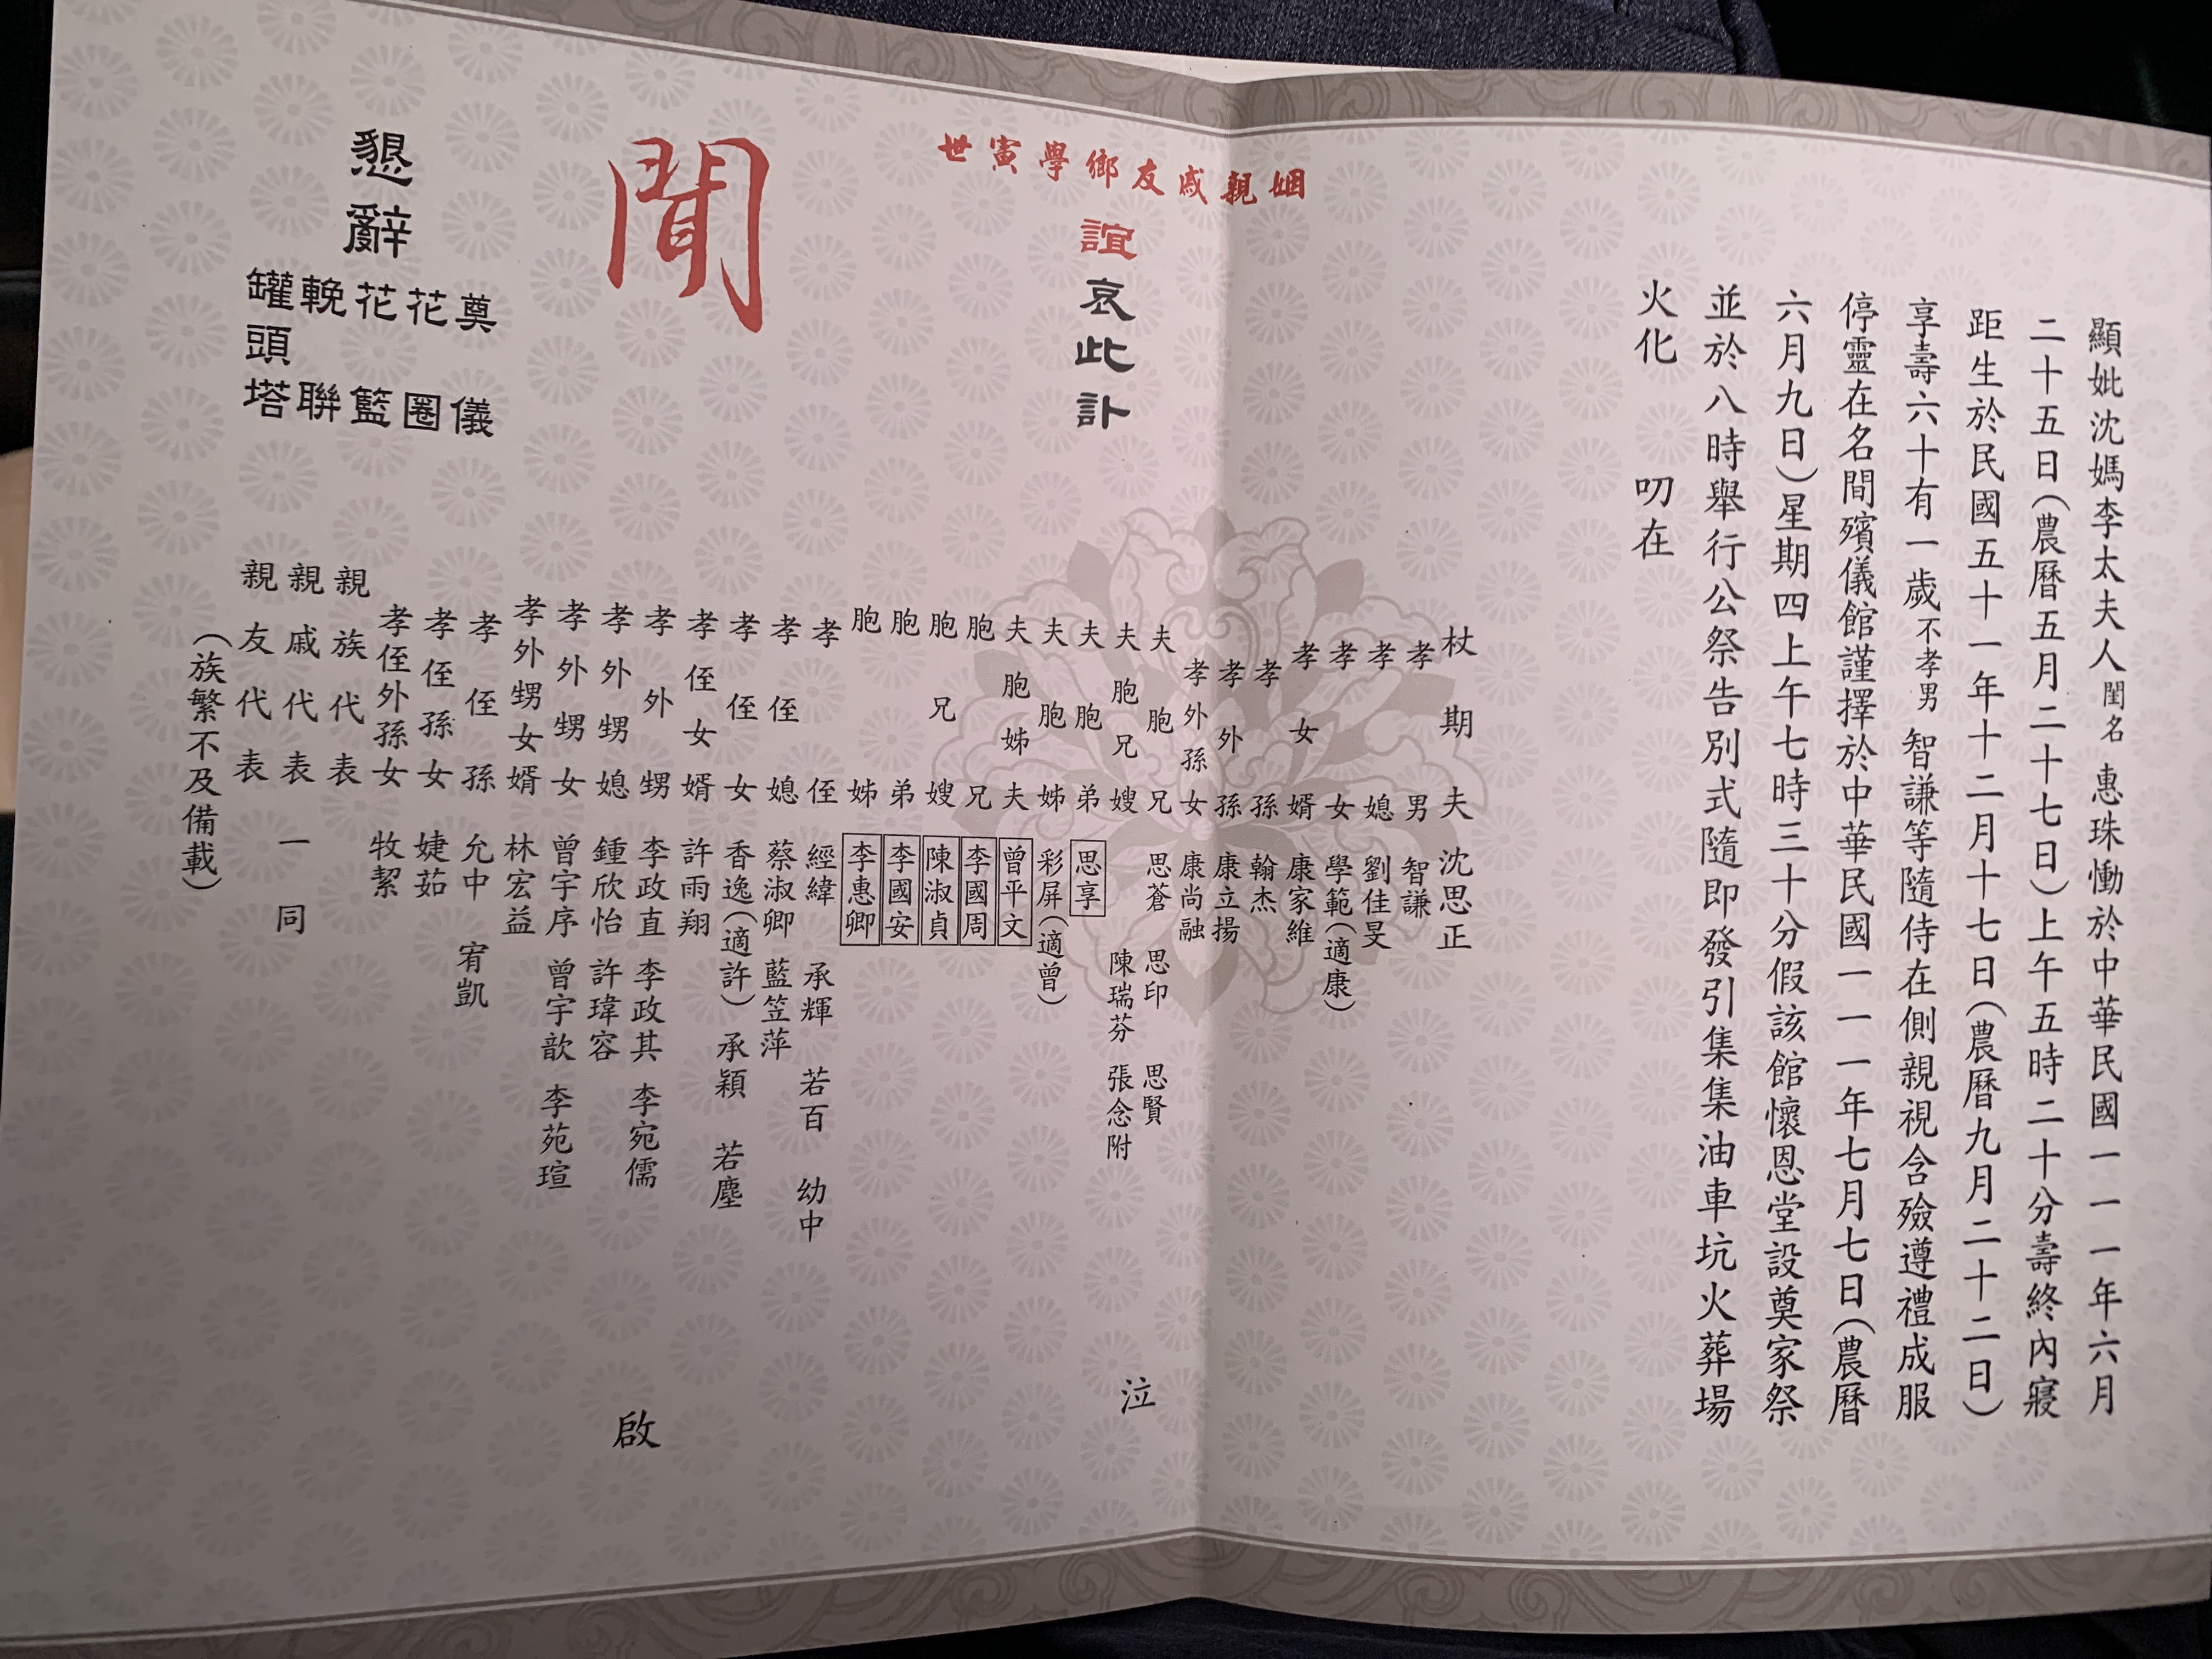 顯妣沈媽李太夫人閨名惠珠慟於中華民國一一一年六月
二十五日(農曆五月二十七日)上午五時二十分壽終內寢
距生於民國五十一年十二月十七日(農曆九月二十二日)
享壽六十有一歲不孝男智謙等隨侍在側親視含殮遵禮成服
停靈在名間殯儀館謹擇於中華民國一一一年七月七日(農曆
六月九日)星期四上午七時三十分假該館懷恩堂設奠家祭
並於八時舉行公祭告別式隨即發引集集油車坑火葬場
火化 叨在
姻親戚友鄉學寅世
誼哀此訃
聞
懇辭
奠儀
花圈
花籃
輓聯
罐頭塔
杖期夫 沈思正
孝男 智謙
孝媳 劉佳旻
孝女 學範(適康)
孝女婿 康家維
孝孫 翰杰
孝外孫 康立揚
孝外孫女 康尚融
夫胞兄 思蒼 思印 思賢
夫胞兄嫂 陳瑞芬 張念附
夫胞弟 思享
夫胞姊 彩屏(適曾)
夫胞姊夫 曾平文
胞兄 李國周
胞兄嫂 陳淑貞
胞弟 李國安
胞姊 李惠卿
孝侄 經緯 承輝 若百 幼中
孝侄媳 蔡淑卿 藍笠萍
孝侄女 香逸(適許) 承穎 若塵
孝侄女婿 許雨翔
孝外甥 李政直 李政其 李宛儒
孝外甥媳 鍾欣怡 許瑋容
孝外甥女 曾宇序 曾宇歆 李苑瑄
孝外甥女婿 林宏益
孝侄孫 允中 宥凱
孝侄孫女 婕茹
孝侄外孫女 牧絜
親族代表
親戚代表 一同
親友代表
(族繁不及備載)
泣
啟